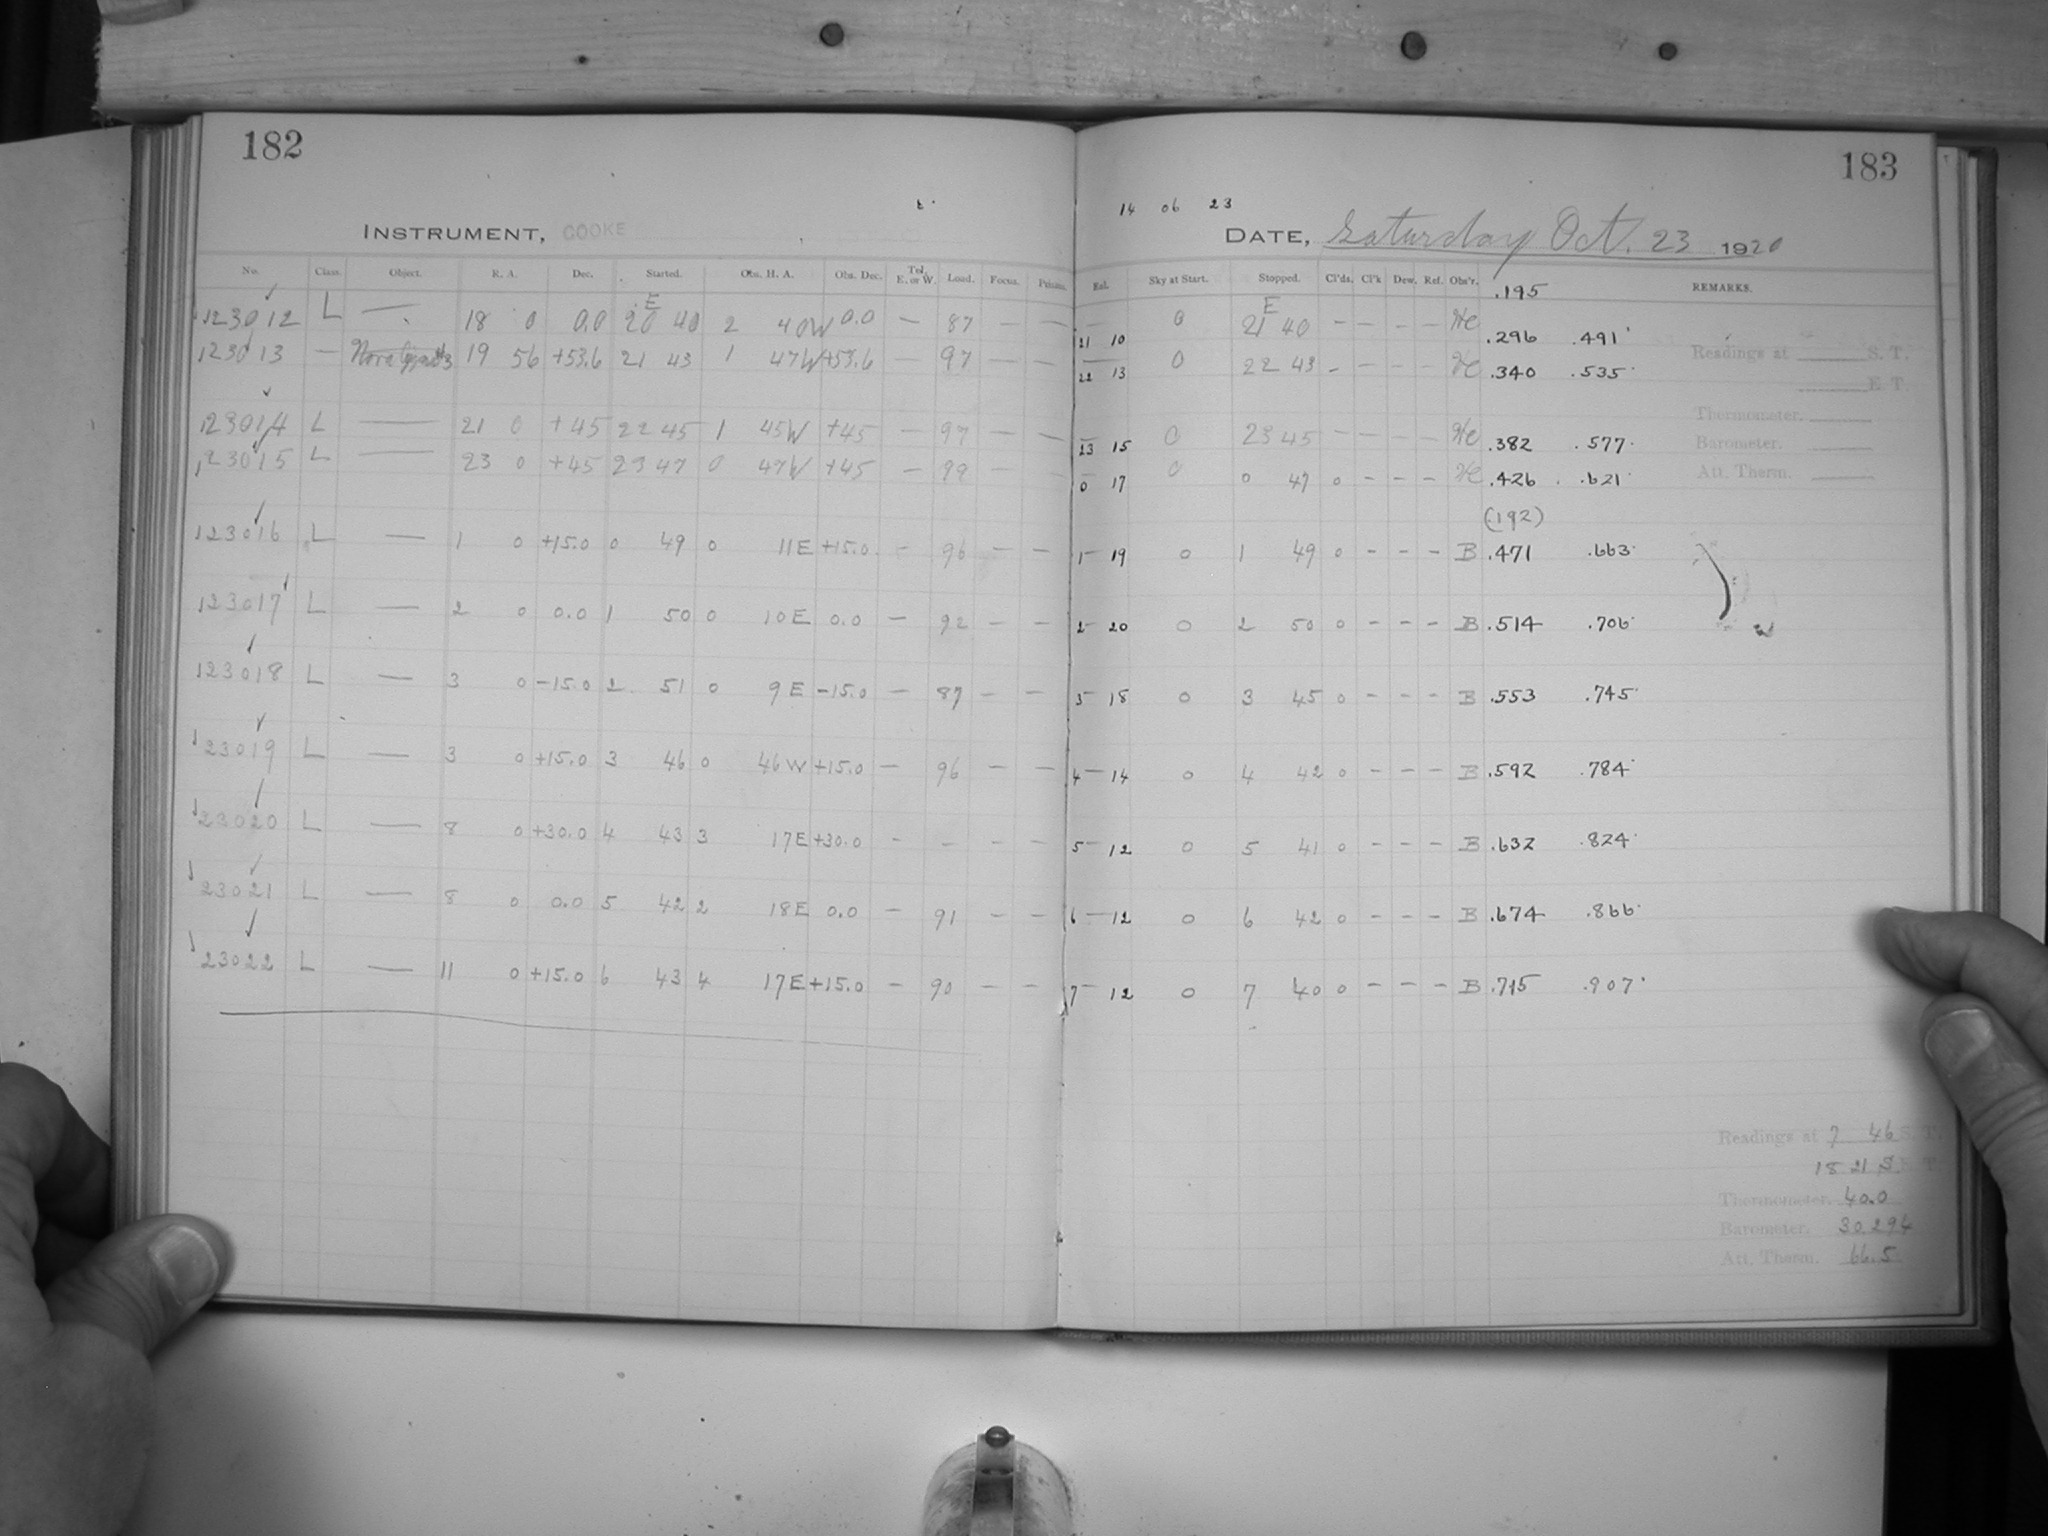 182
INSTRUMENT, COOKE
No. Class. Object. R. A. Dec. Started. Obs. H. A. Obs. Dec. Tel. E. or W. Load. Focus. Prisms.
E
123012 L — 18 0 0.0 20 40 2 40W 0.0 — 87 — —
123013 — 19 56 +53.6 21 43 1 47W +53.6 — 97 — —
123014 L — 21 0 +45 22 45 1 45W +45 — 97 — —
123015 L — 23 0 +45 23 47 0 47W +45 — 99 — —
123016 L — 1 0 +15.0 0 49 0 11E +15.0 — 96 — —
123017 L — 2 0 0.0 1 50 0 10E 0.0 — 92 — —
123018 L — 3 0 -15.0 2 51 0 9E -15.0 — 87 — —
123019 L — 3 0 +15.0 3 46 0 46W +15.0 — 96 — —
123020 L — 8 0 +30.0 4 43 3 17E +30.0 - - - -
123021 L — 8 0 0.0 5 42 2 18E 0.0 — 91 — —
123022 L — 11 0 +15.0 6 43 4 17E +15.0 — 90 — —
183
14 06 23
DATE, Saturday Oct. 23 1920
Exl. Sky at Start. Stopped. Cl'ds. Cl'k Dew. Ref. Obs'r. .195 REMARKS.
E
21 10 0 21 40 - - - - He .296 .491
22 13 0 22 43 - - - - He .340 .535
23 15 0 23 45 - - - - He .382 .577
0 17 0 0 47 0 - - - He .426 .621
(.192)
1 19 0 1 49 0 - - - B .471 .663
2 20 0 2 50 0 - - - B .514 .706
3 18 0 3 45 0 - - - B .553 .745
4 14 0 4 42 0 - - - B .592 .784
5 12 0 5 41 0 - - - B .632 .824
6 12 0 6 42 0 - - - B .674 .866
7 12 0 7 40 0 - - - B .715 .907
Readings at S. T.
E. T.
Thermometer.
Barometer.
Att. Therm.
Readings at 7 46 S. T.
18 21 S
Thermometer. 40.0
Barometer. 30.294
Att. Therm. 66.5